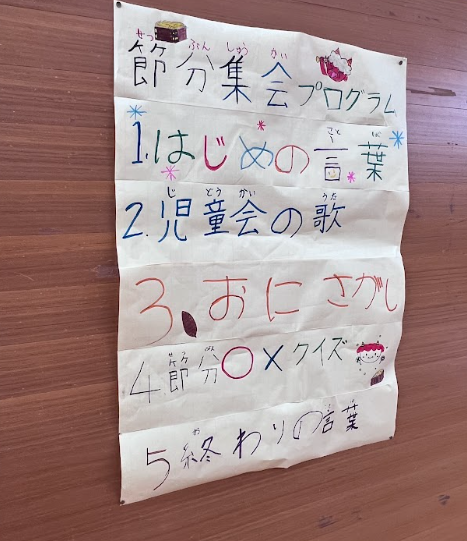 節分集会プログラム
1.はじめの言葉
2.児童会の歌
3、おにさがし
4.節分○×クイズ
5終わりの言葉